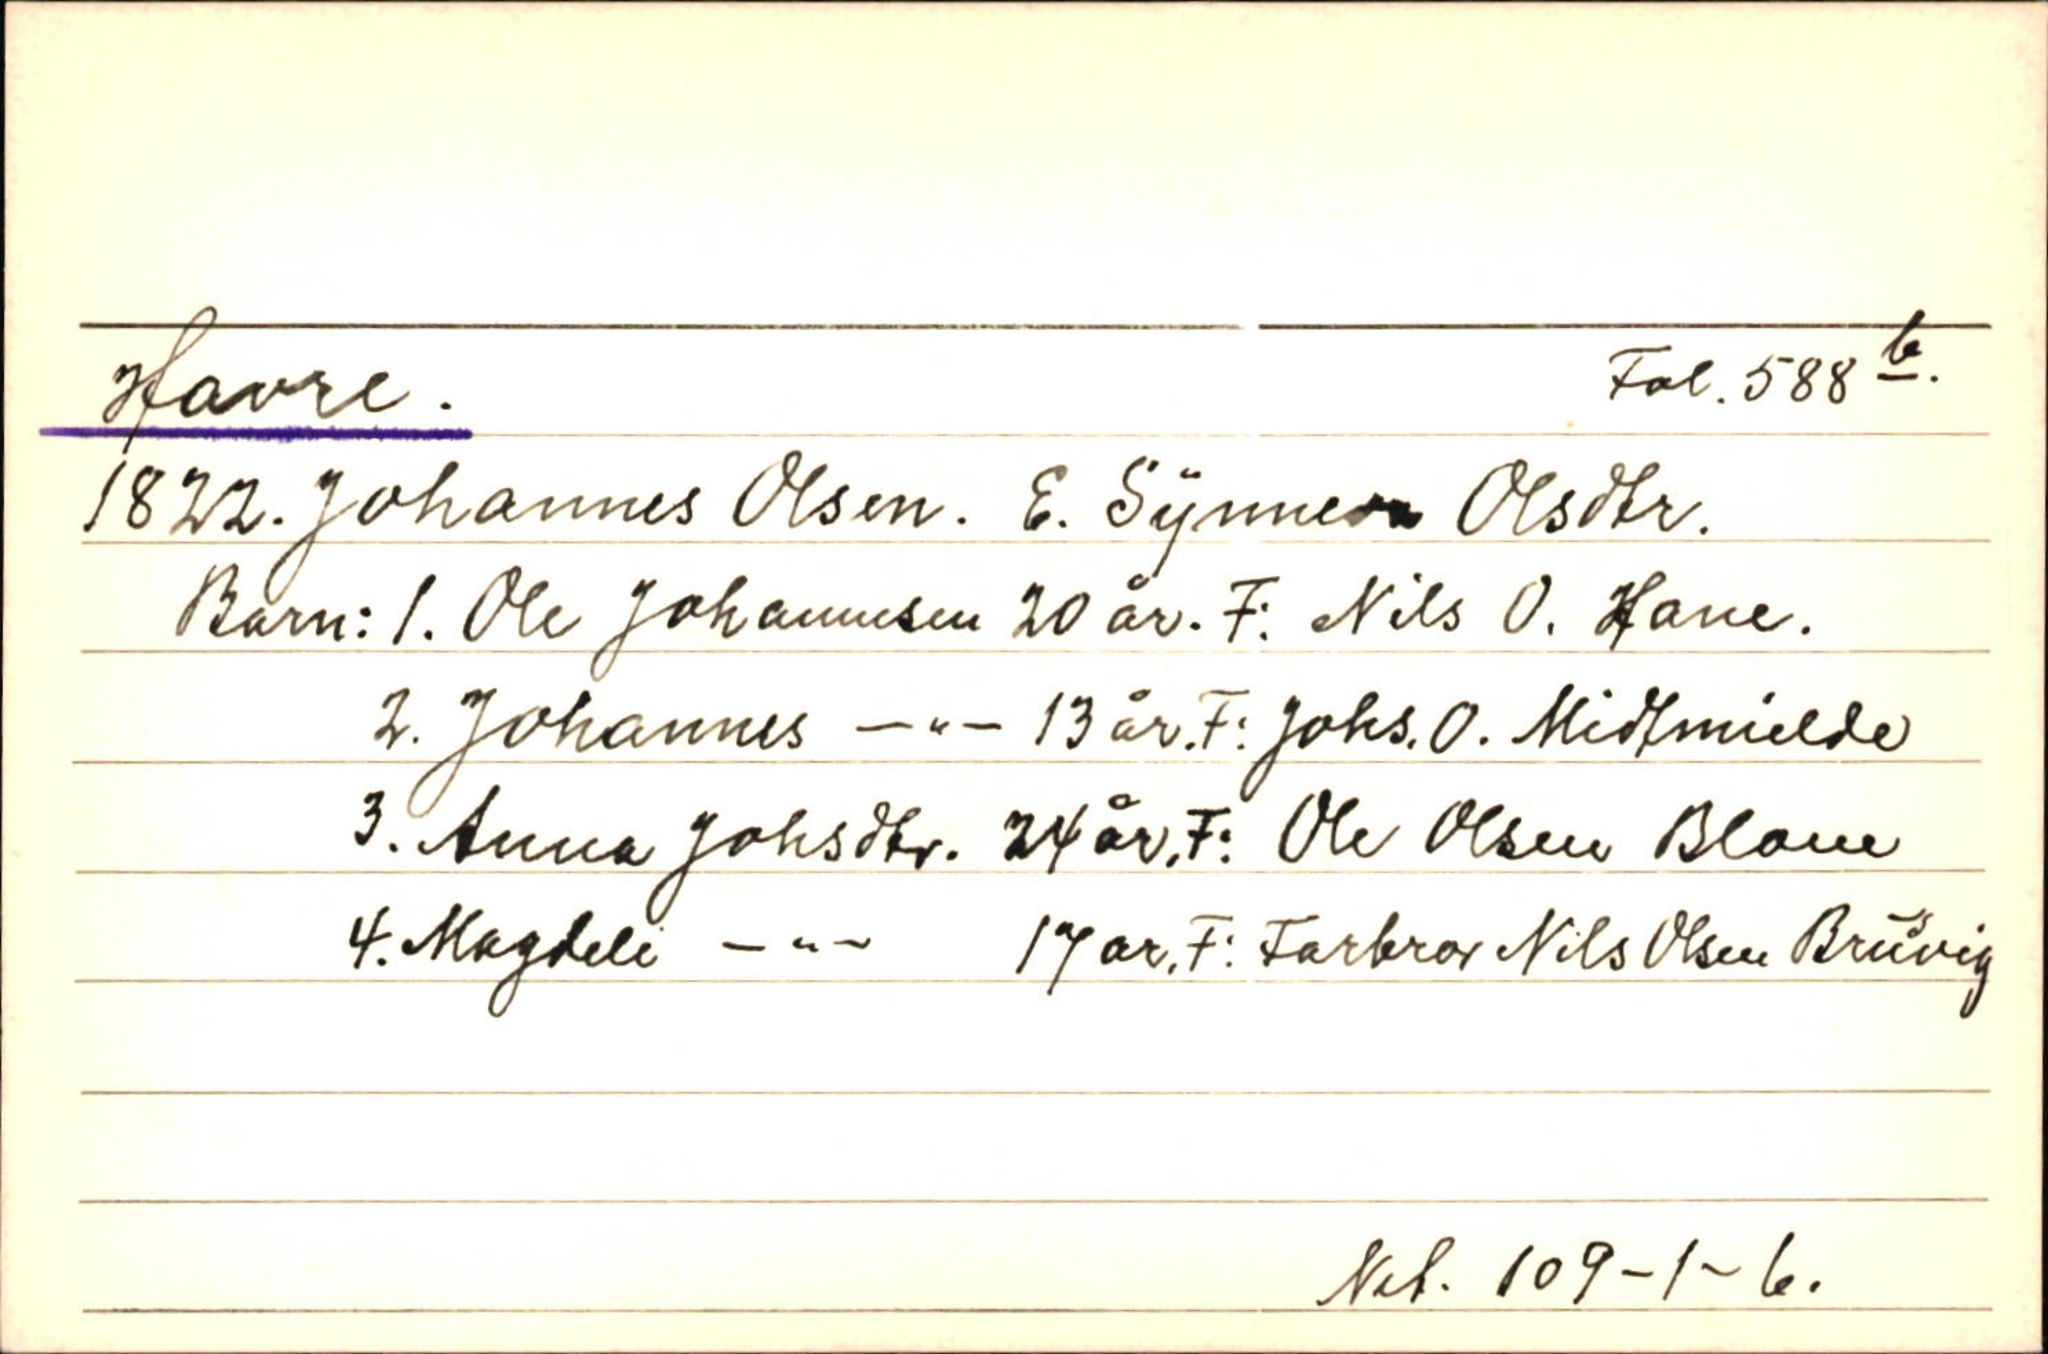 Havre. Fol. 588 b.
1822. Johannes Olsen. E. Sÿnneva Olsdtr.
Barn: 1. Ole Johannesen 20 år. F: Nils O. Hane.
2. Johannes —„— 13 år. F: Johs. O. Midtmielde
3. Anna Johsdtr. 24 år. F: Ole Olsen Blom
4. Magdeli —„— 17 ar. F: Farbror Nils Olsen Brüvig
109-1-b.